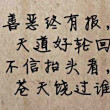 善恶终有报
天道好轮回
不信抬头看
苍天饶过谁